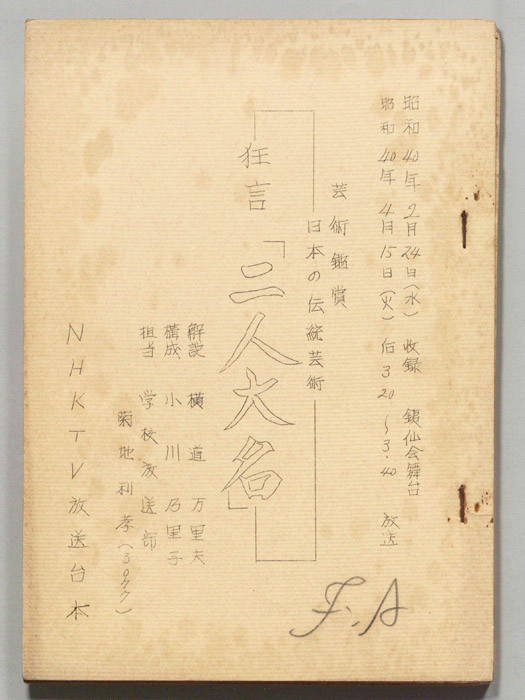 昭和40年2月24日(水) 收録 銕仙会舞台
昭和40年4月15日(火) 后3.20~3.40 放送
芸術鑑賞
日本の伝統芸術
狂言「二人大名」
解説 横道 万里夫
構成 小川 乃里子
担当 学校放送部
菊地利孝(3077)
NHKTV放送台本
F.A